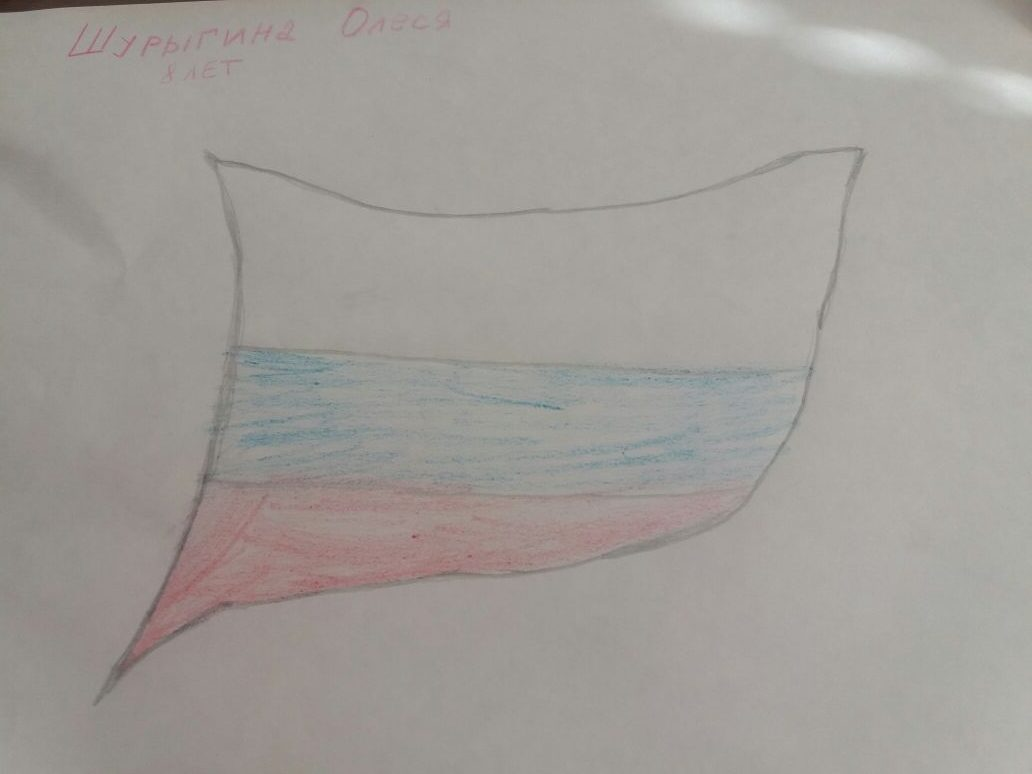 Шурыгина Олеся
8 лет